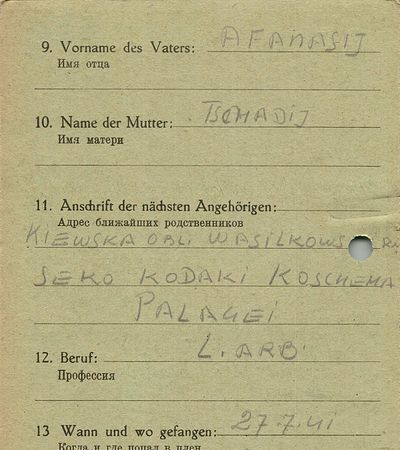 9. Vorname des Vaters: AFANASIJ
Имя отца
10. Name der Mutter: TSCHADIJ
Имя матери
11. Anschrift der nächsten Angehörigen:
Адрес ближайших родственников
KIEWSKA OBLI WASILKOWS
SEKO KODAKI KOSCHEMA
PALAGEI
12. Beruf: L. ARB.
Профессия
13 Wann und wo gefangen: 27.7.41
Когда и где попал в плен